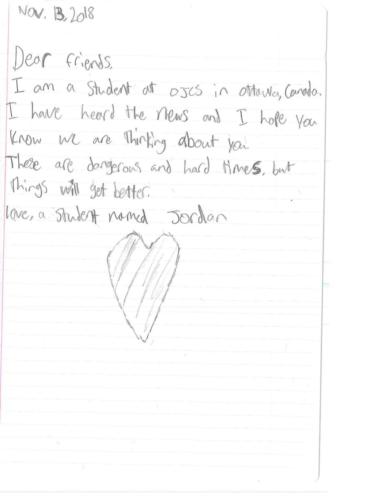 Nov. 13, 2018
Dear friends,
I am a student at OJCS in Ottawa, Canada.
I have heard the news and I hope you
know we are thinking about you.
These are dangerous and hard times, but
things will get better.
love, a student named Jordan